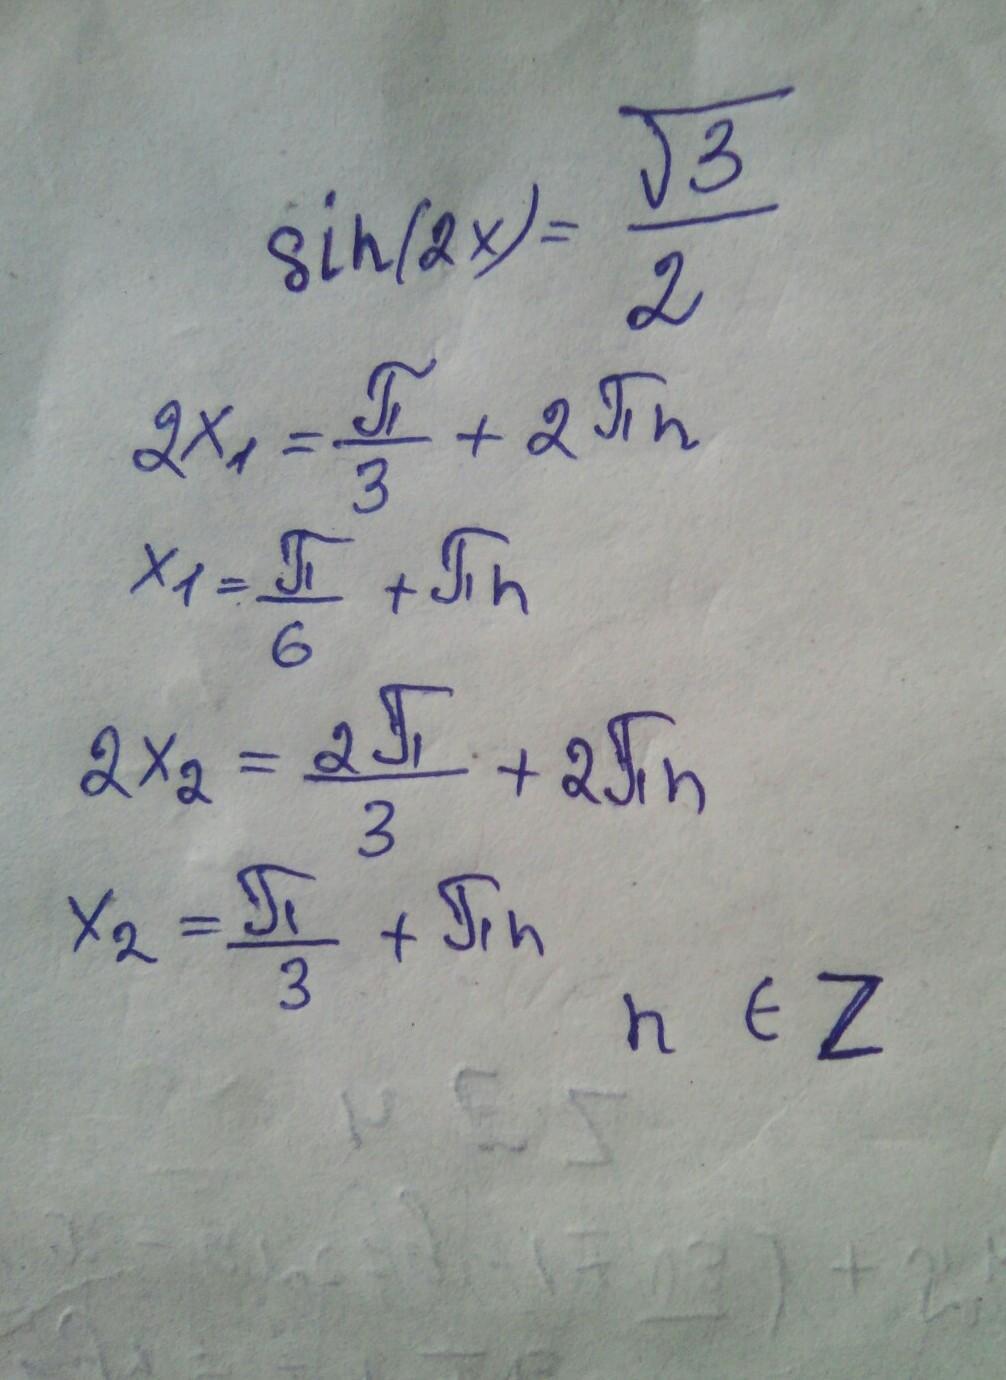 sin(2x) = √3/2
2x₁ = π/3 + 2πn
x₁ = π/6 + πn
2x₂ = 2π/3 + 2πn
x₂ = π/3 + πn
n ∈ Z